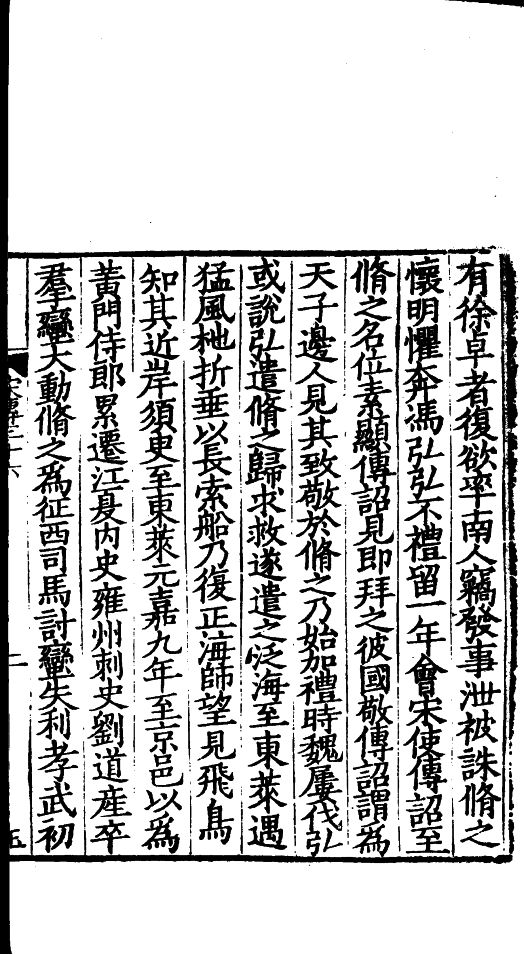 有徐卓者復欲率南人竊發事泄被誅脩之
懷明懼奔馮弘弘不禮留一年會宋使傳詔至
脩之名位素顯傳詔見即拜之彼國敬傳詔謂為
天子邊人見其致敬於脩之乃始加禮時魏屢伐弘
或說弘遣脩之歸求救遂遣之泛海至東萊遇
猛風柂折垂以長索船乃復正海師望見飛鳥
知其近岸須臾至東萊元嘉九年至京邑以為
黃門侍郎累遷江夏內史雍州刺史劉道產卒
羣蠻大動脩之為征西司馬討蠻失利孝武初